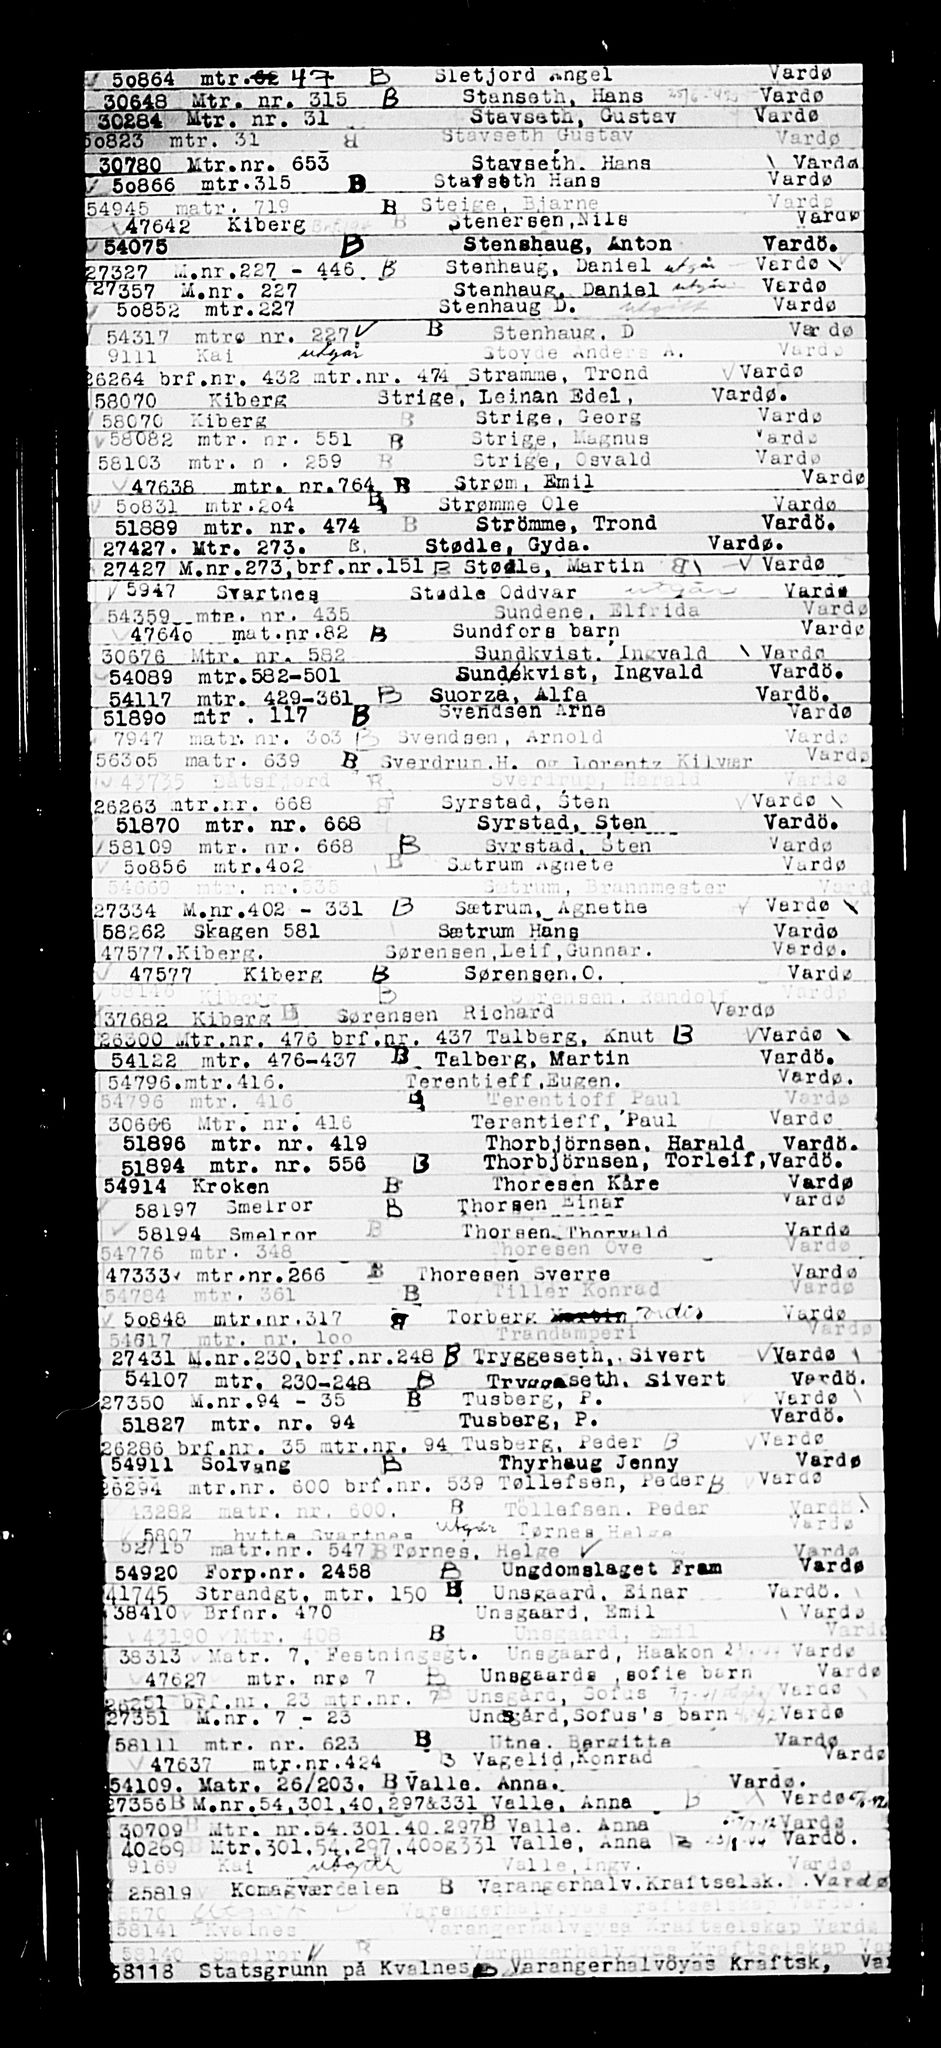 50864 mtr. 47 B Sletjord Angel Vardø
30648 Mtr. nr. 315 B Stanseth, Hans Vardø
30284 Mtr. nr. 31 Stavseth, Gustav Vardø
50823 mtr. 31 B Stavseth Gustav Vardø
30780 Mtr.nr. 653 Stavseth. Hans \ Vardø
50866 mtr.315 B Stafseth Hans Vardø
54945 matr. 719 B Steige, Bjarne Vardø
47642 Kiberg B Stenersen,Nils Vardø
54075 B Stenshaug, Anton Vardö.
27327 M.nr.227 - 446 B Stenhaug, Daniel utgår Vardø \
27357 M.nr. 227 Stenhaug, Daniel utgår Vardø
50852 mtr.227 Stenhaug D. utgått Vardø
54317 mtrø nr. 227 B Stenhaug. D Vardø
9111 Kai utgår Stoyde Anders A. Vardø
26264 brf.nr. 432 mtr.nr. 474 Stramme, Trond Vardø
58070 Kiberg Strige, Leinan Edel, Vardø.
58070 Kiberg B Strige, Georg Vardø
58082 mtr. nr. 551 B Strige, Magnus Vardø
58103 mtr. n . 259 B Strige, Osvald Vardø
47638 mtr. nr.764 B Strøm, Emil Vardø
50831 mtr.204 B Strømme Ole Vardø
51889 mtr. nr. 474 B Strömme, Trond Vardö.
27427. Mtr. 273. B. Stødle, Gyda. Vardø.
27427 M.nr.273,brf.nr.151 B Stødle, Martin B \ Vardø
5947 Svartnes Stødle Oddvar utgår Vardø
54359 mtr. nr. 435 Sundene, Elfrida Vardø
47640 mat.nr.82 B Sundfors barn Vardø
30676 Mtr. nr. 582 Sundkvist. Ingvald \ Vardø
54089 mtr.582-501 Sundekvist, Ingvald Vardö.
54117 mtr. 429-361 B Suorza, Alfa Vardö.
51890 mtr . 117 B Svendsen Arne Vardø
7947 matr. nr. 303 B Svendsen, Arnold Vardø
56305 matr. 639 B Sverdrup.H. og Lorentz Kilvær Vardø
43735 Båtsfjord B Sverdrup, Harald Vardø
26263 mtr.nr. 668 B Syrstad, Sten Vardø \
51870 mtr. nr. 668 Syrstad, Sten Vardö.
58109 mtr. nr. 668 B Syrstad, Sten Vardø
50856 mtr.402 B Sætrum Agnete Vardø
54669 mtr. nr.535 Sætrum, Brannmester Vard
27334 M.nr.402 - 331 B Sætrum, Agnethe Vardø \
58262 Skagen 581 Sætrum Hans Vardø
47577.Kiberg. Sørensen,Leif,Gunnar. Vardø.
47577 Kiberg B Sørensen.O. Vardø
58146 Kiberg B Sørensen. Randolf Vardø
37682 Kiberg B Sørensen Richard Vardø
26300 Mtr.nr. 476 brf.nr. 437 Talberg, Knut B Vardø \
54122 mtr. 476-437 B Talberg, Martin Vardö.
54796.mtr.416. Terentieff,Eugen. Vardø.
54796 mtr. 416 B Terentioff Paul Vardø
30666 Mtr. nr. 416 Terentieff, Paul Vardø
51896 mtr. nr. 419 Thorbjörnsen. Harald Vardö.
51894 mtr. nr. 556 B Thorbjörnsen, Torleif,Vardö.
54914 Kroken B Thoresen Kåre Vardø
58197 Smelror B Thorsen Einar Vardø
58194 Smelror B Thorsen Thorvald Vardø
54776 mtr. 348 Thoresen Ove Vardø
47333 mtr.nr.266 B Thoresen Sverre Vardø
54784 mtr. 361 B Tiller Konrad Vardø
50848 mtr.nr.317 B Torberg Martin Vardø
54617 mtr. nr. 100 Trandamperi Vardø
27431 M.nr.230,brf.nr.248 B Tryggeseth, Sivert Vardø \
54107 mtr. 230-248 B Tryggeseth. Sivert Vardö.
27350 M.nr.94 - 35 B Tusberg, P. Vardø \
51827 mtr. nr. 94 Tusberg, P. Vardö.
26286 brf.nr. 35 mtr.nr. 94 Tusberg, Peder B Vardø
54911 Solvang B Thyrhaug Jenny Vardø
26294 mtr.nr. 600 brf.nr. 539 Tøllefsen, Peder B Vardø
43282 matr. nr. 600. B Töllefsen. Peder Vardö. \
5807 hytte Svartnes utgår Tørnes Helge Vardø
52715 matr.nr. 547 B Tørnes, Helge Vardø
54920 Forp.nr. 2458 B Ungdomslaget Fram Vardø
41745 Strandgt, mtr. 150 B Unsgaard, Einar Vardö. \
38410 Brfnr. 470 Unsgaard, Emil \ Vardø
43190 Mtr. 408 B Unsgaard, Emil Vardø
38313 Matr. 7, Festningsgt. Unsgaard, Haakon Vardø
47627 mtr. nrø 7 B Unsgaards ,sofie barn Vardø
26251 brf.nr. 23 mtr.nr. 7 B Unsgård, Sofus Vardø \
27351 M.nr. 7 - 23 Undsgård,Sofus's barn Vardø
58111 mtr. nr. 623 B Utne. Bergitte Vardø
47637 mtr.nr.424 B Vagelid,Konrad Vardø
54109. Matr. 26/203. B Valle. Anna. Vardø.
27356 B M.nr.54,301,40,297&331 Valle, Anna B Vardø
30709 B Mtr. nr.54.301.40.297 B Valle. Anna Vardø
40269 B Mtr.301,54,297,40og331 Valle, Anna B Vardö.
9169 Kai utgått Valle,Ingv. Vardø
25819 Komagværdalen B Varangerhalv.Kraftselsk. Vardø
8570 Varangerhalvøyas Kraftselskap Vardø.
58141 Kvalnes Varangerhalvøyas Kraftselskap Vardø
58140 Smelror B Varangerhalvöyas Kraftselskap Va
58118 Statsgrunn på Kvalnes B Varangerhalvöyas Kraftsk, Va